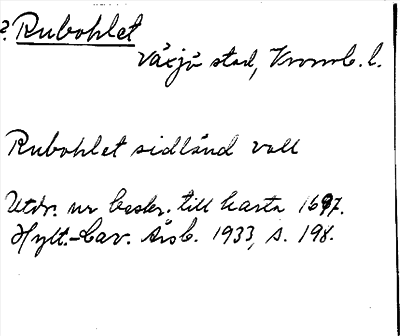 ? Rubohlet
Växjö stad, Kronob. l.
Rubohlet sidländ vall
Utdr. ur beskr. till karta 1697.
Hylt.-Cav. Årsb. 1933, s. 198.